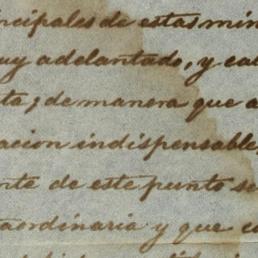 ncipales de estas min
uy adelantado, y ca
ta; de manera que a
acion indispensable,
nte de este punto se
raordinaria y que co